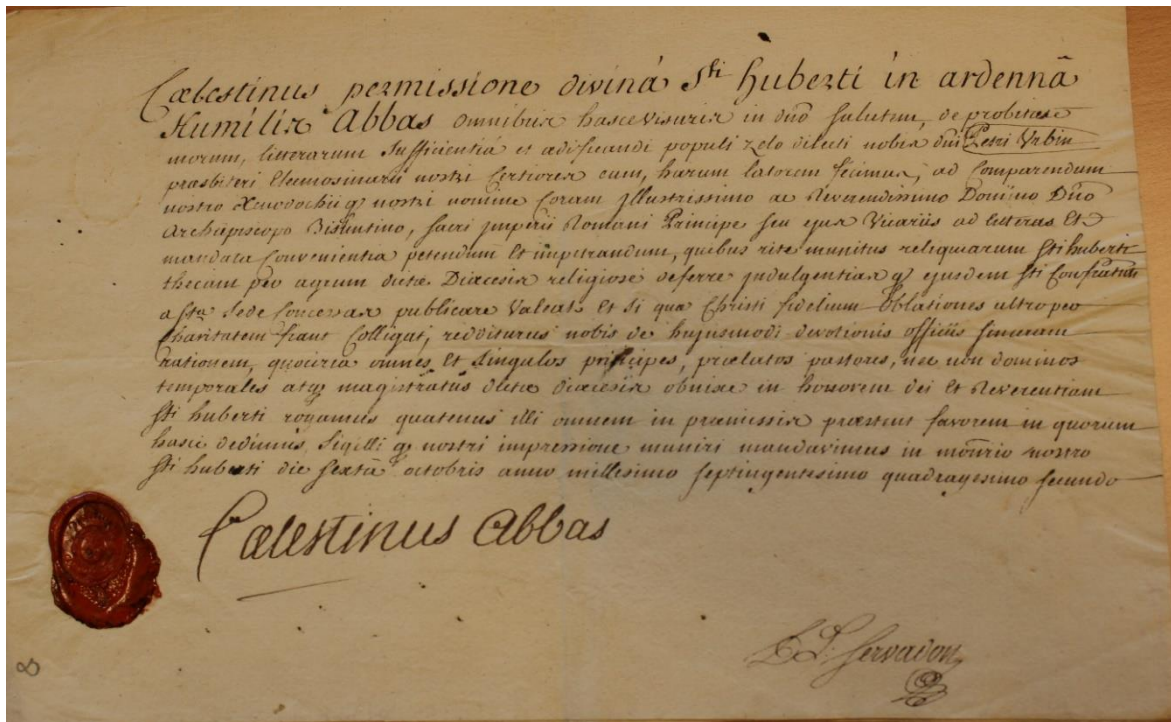 Cælestinus permissione divinâ Sti huberti in ardennâ
Humilis Abbas omnibus hasce visuris in dño salutem, de probitate
morum, litterarum sufficientiâ et ædificandi populi zelo dilecti nobis dni Petri Urbin
præsbiteri Eleemosinarii nostri Certiores eum, harum latorem fecimus, ad Comparendum
nostro Xenodochii q nostri nomine Coram Jllustrissimo ac Reverendissimo Domino Dño
Archiepiscopo Bisuntino, sacri jmperii Romani Principe seu ejus Vicariis ad litteras Et
mandata Convenientia petendum Et impetrandum, quibus rite munitus reliquiarum Sti huberti
thecam per agrum dictæ Diæcesis religiosè deferre jndulgentias q ejusdem Sti Confraternitati
a Sta Sede Concessas publicare Valeat, Et si quæ Christi fidelium Oblationes ultro per
Charitatem fiant Colligat, redditurus nobis de hujusmodi devotionis officiis sinceram
rationem, quocirca omnes Et singulos principes, prælatos pastores, nec non dominos
temporales atq magistratus dictæ diæcesis obnixe in honorem dei Et Reverentiam
Sti huberti rogamus quatenus illi omnem in præmissis præstent favorem in quorum
hasce dedimus, Sigilli q nostri impressione muniri mandavimus in mõnrio nostro
Sti huberti die sextâ octobris anno millesimo septingentesimo quadragesimo secundo
Cælestinus Abbas
Servadon
8